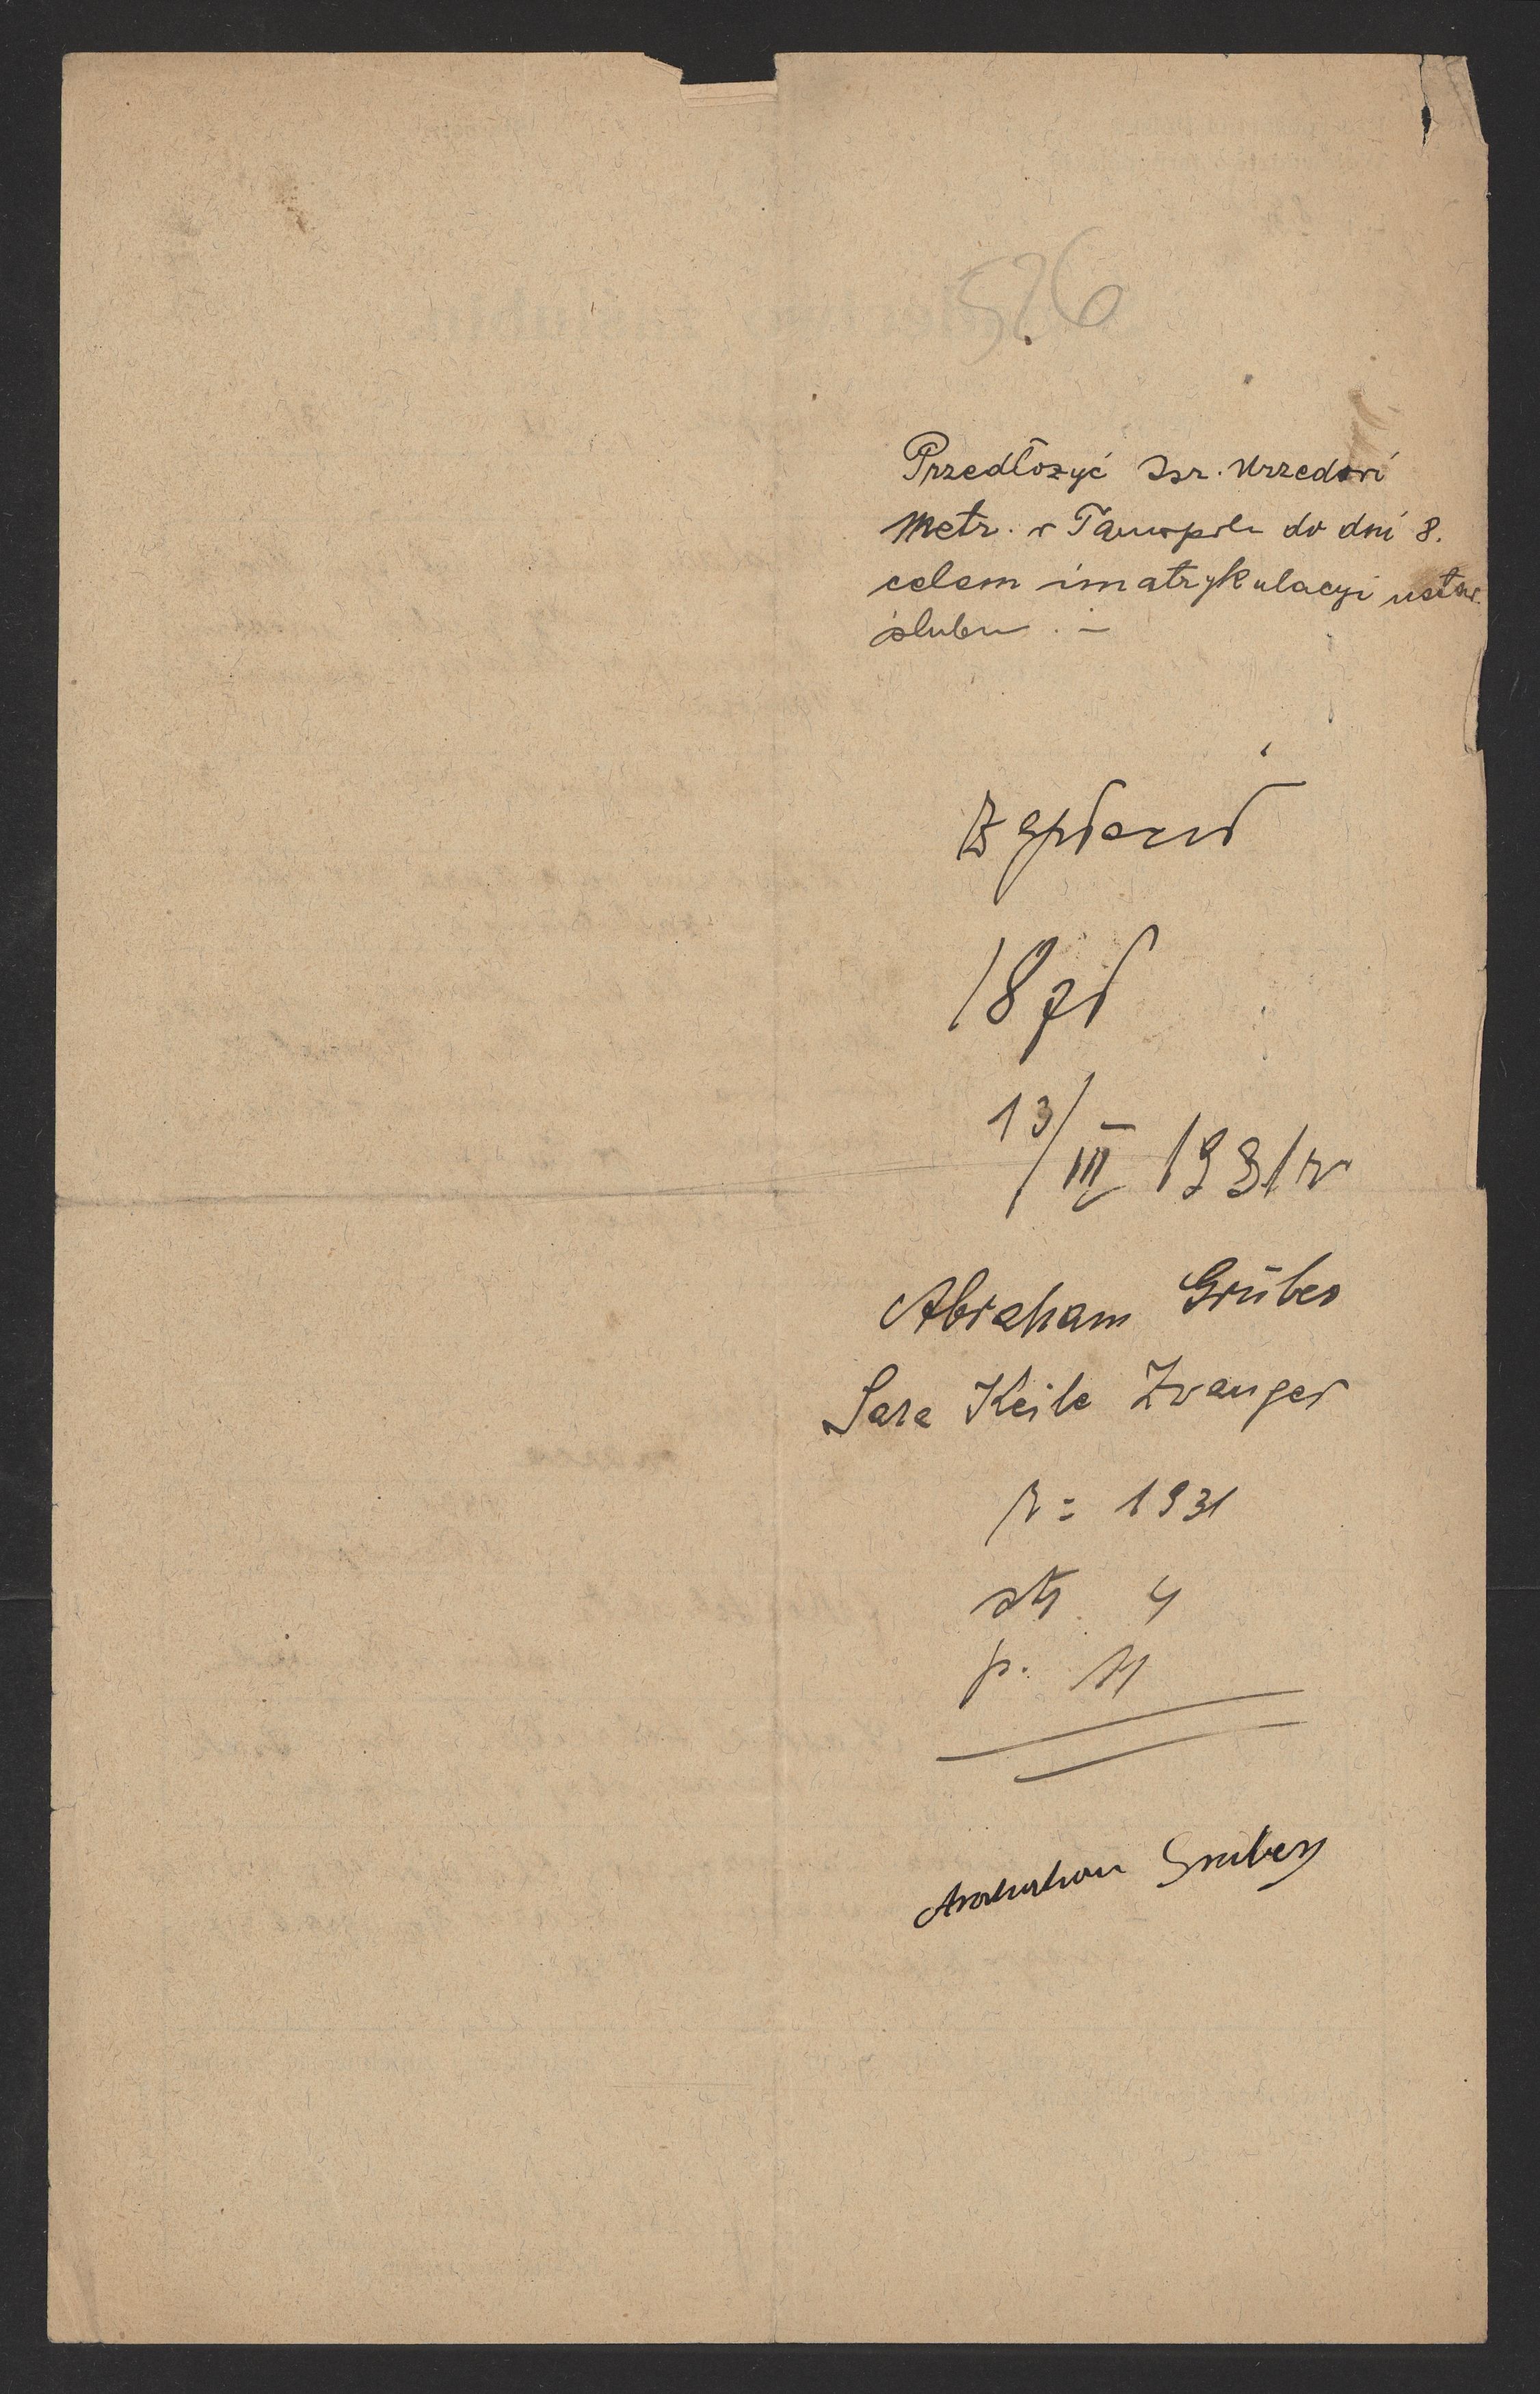 526
Przedłożyć Izr. Urzędowi
Metr. w Tarnopolu do dni 8.
celem imatrykulacyi ustaw.
ślubu . –
Zapłacił
18 zł
13/III 1931 r
Abraham Grüber
Sara Keile Zwanger
r: 1931
str 4
p. 11
Gruber